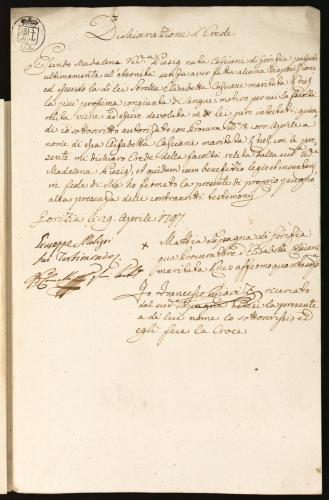 Dichiarazione d'Erede
Essendo Madalena Ved:ª Kosig nata Cassani di Gorizia passata
ultimamente al eterneta senza aver fatta alcuna disposizione
ed essendo la di lei Sorella Elisabetta Cassani maritata
la piu prossima congiunta di sangue motivo per cui la facoltà
relita viene ad essere devoluta in di lei pure intestati, quin-
di io sottoscritto autorizato con Procura 8 corr: Aprile a
nome di essa Elisabetta Cassani maritata con la pre-
sente mi dichiaro Erede della facoltà relita dalla sud:ª
Madalena Kosig, et quidem cum beneficio legis et inventarii
in fede di che ho firmato la presente di proprio pugno
alla presenza delli contrascritti testimonj
Gorizia li 29 Aprile 1797.
Giuseppe
fui Testimonio
+ Mattia di Gorizia
qua Procuratore d'Elisabetta Cassani
maritata affermo quanto sopra
Io Francesco ricercato
dal sud:º la presente
a di lui nome lo sottoscrissi ed
egli fece la Croce